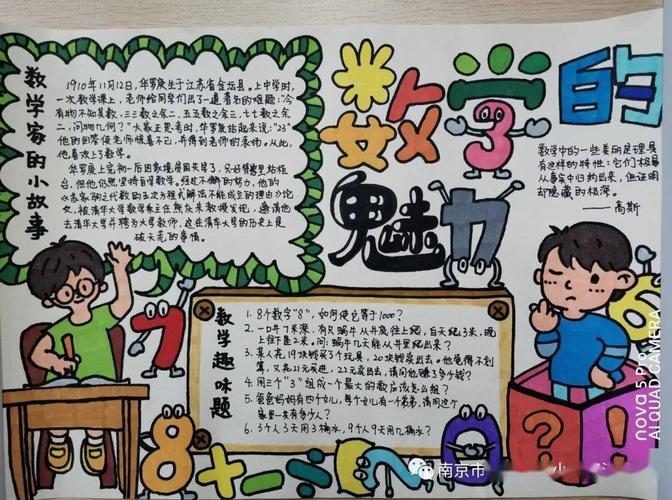 数学的
魅力
数学家的小故事
1910年11月12日,华罗庚生于江苏省金坛县。上中学时,
一次数学课上,老师给同学们出了一道著名的难题:"今
有物不知其数,三三数之余二,五五数之余三,七七数之余
二,问物几何?"大家正思考时,华罗庚站起来说:"23"
他的回答使老师惊喜不已,并得到老师的表扬。从此,
他喜欢上了数学。
华罗庚上完初一后因家境贫困失学了,只好替家里站柜
台,但他仍然坚持自学数学。经过不懈的努力,他的
《苏家驹之代数的五次方程式解法不能成立的理由》论
文,被清华大学数学系主任熊庆来教授发现,邀请他
去清华大学并聘为大学教师,这在清华大学的历史上是
破天荒的事情。
数学中的一些美丽定理具
有这样的特性:它们极易
从事实中归纳出来,但证明
却隐藏的极深。
——高斯
数学趣味题
1. 8个数字"8",如何使它等于1000?
2. 一口井7米深,有只蜗牛从井底往上爬,白天爬3米,晚
上往下坠2米。问:蜗牛几天能从井里爬出来?
3. 某人花19块钱买了个玩具,20块钱卖出去。他觉得不划
算,又花21元买进,22元卖出去,请问他赚了多少钱?
4. 用三个"3"组成一个最大的数应该怎么组?
5. 爸爸妈妈有四个女儿,每个女儿有一个弟弟,请问这个
家里一共有多少人?
6. 3个人3天用3桶水,9个人9天用几桶水?
3
7
8
8+-÷
2
0
?
!
nova 5 Pro
AI QUAD CAMERA
南京市
小